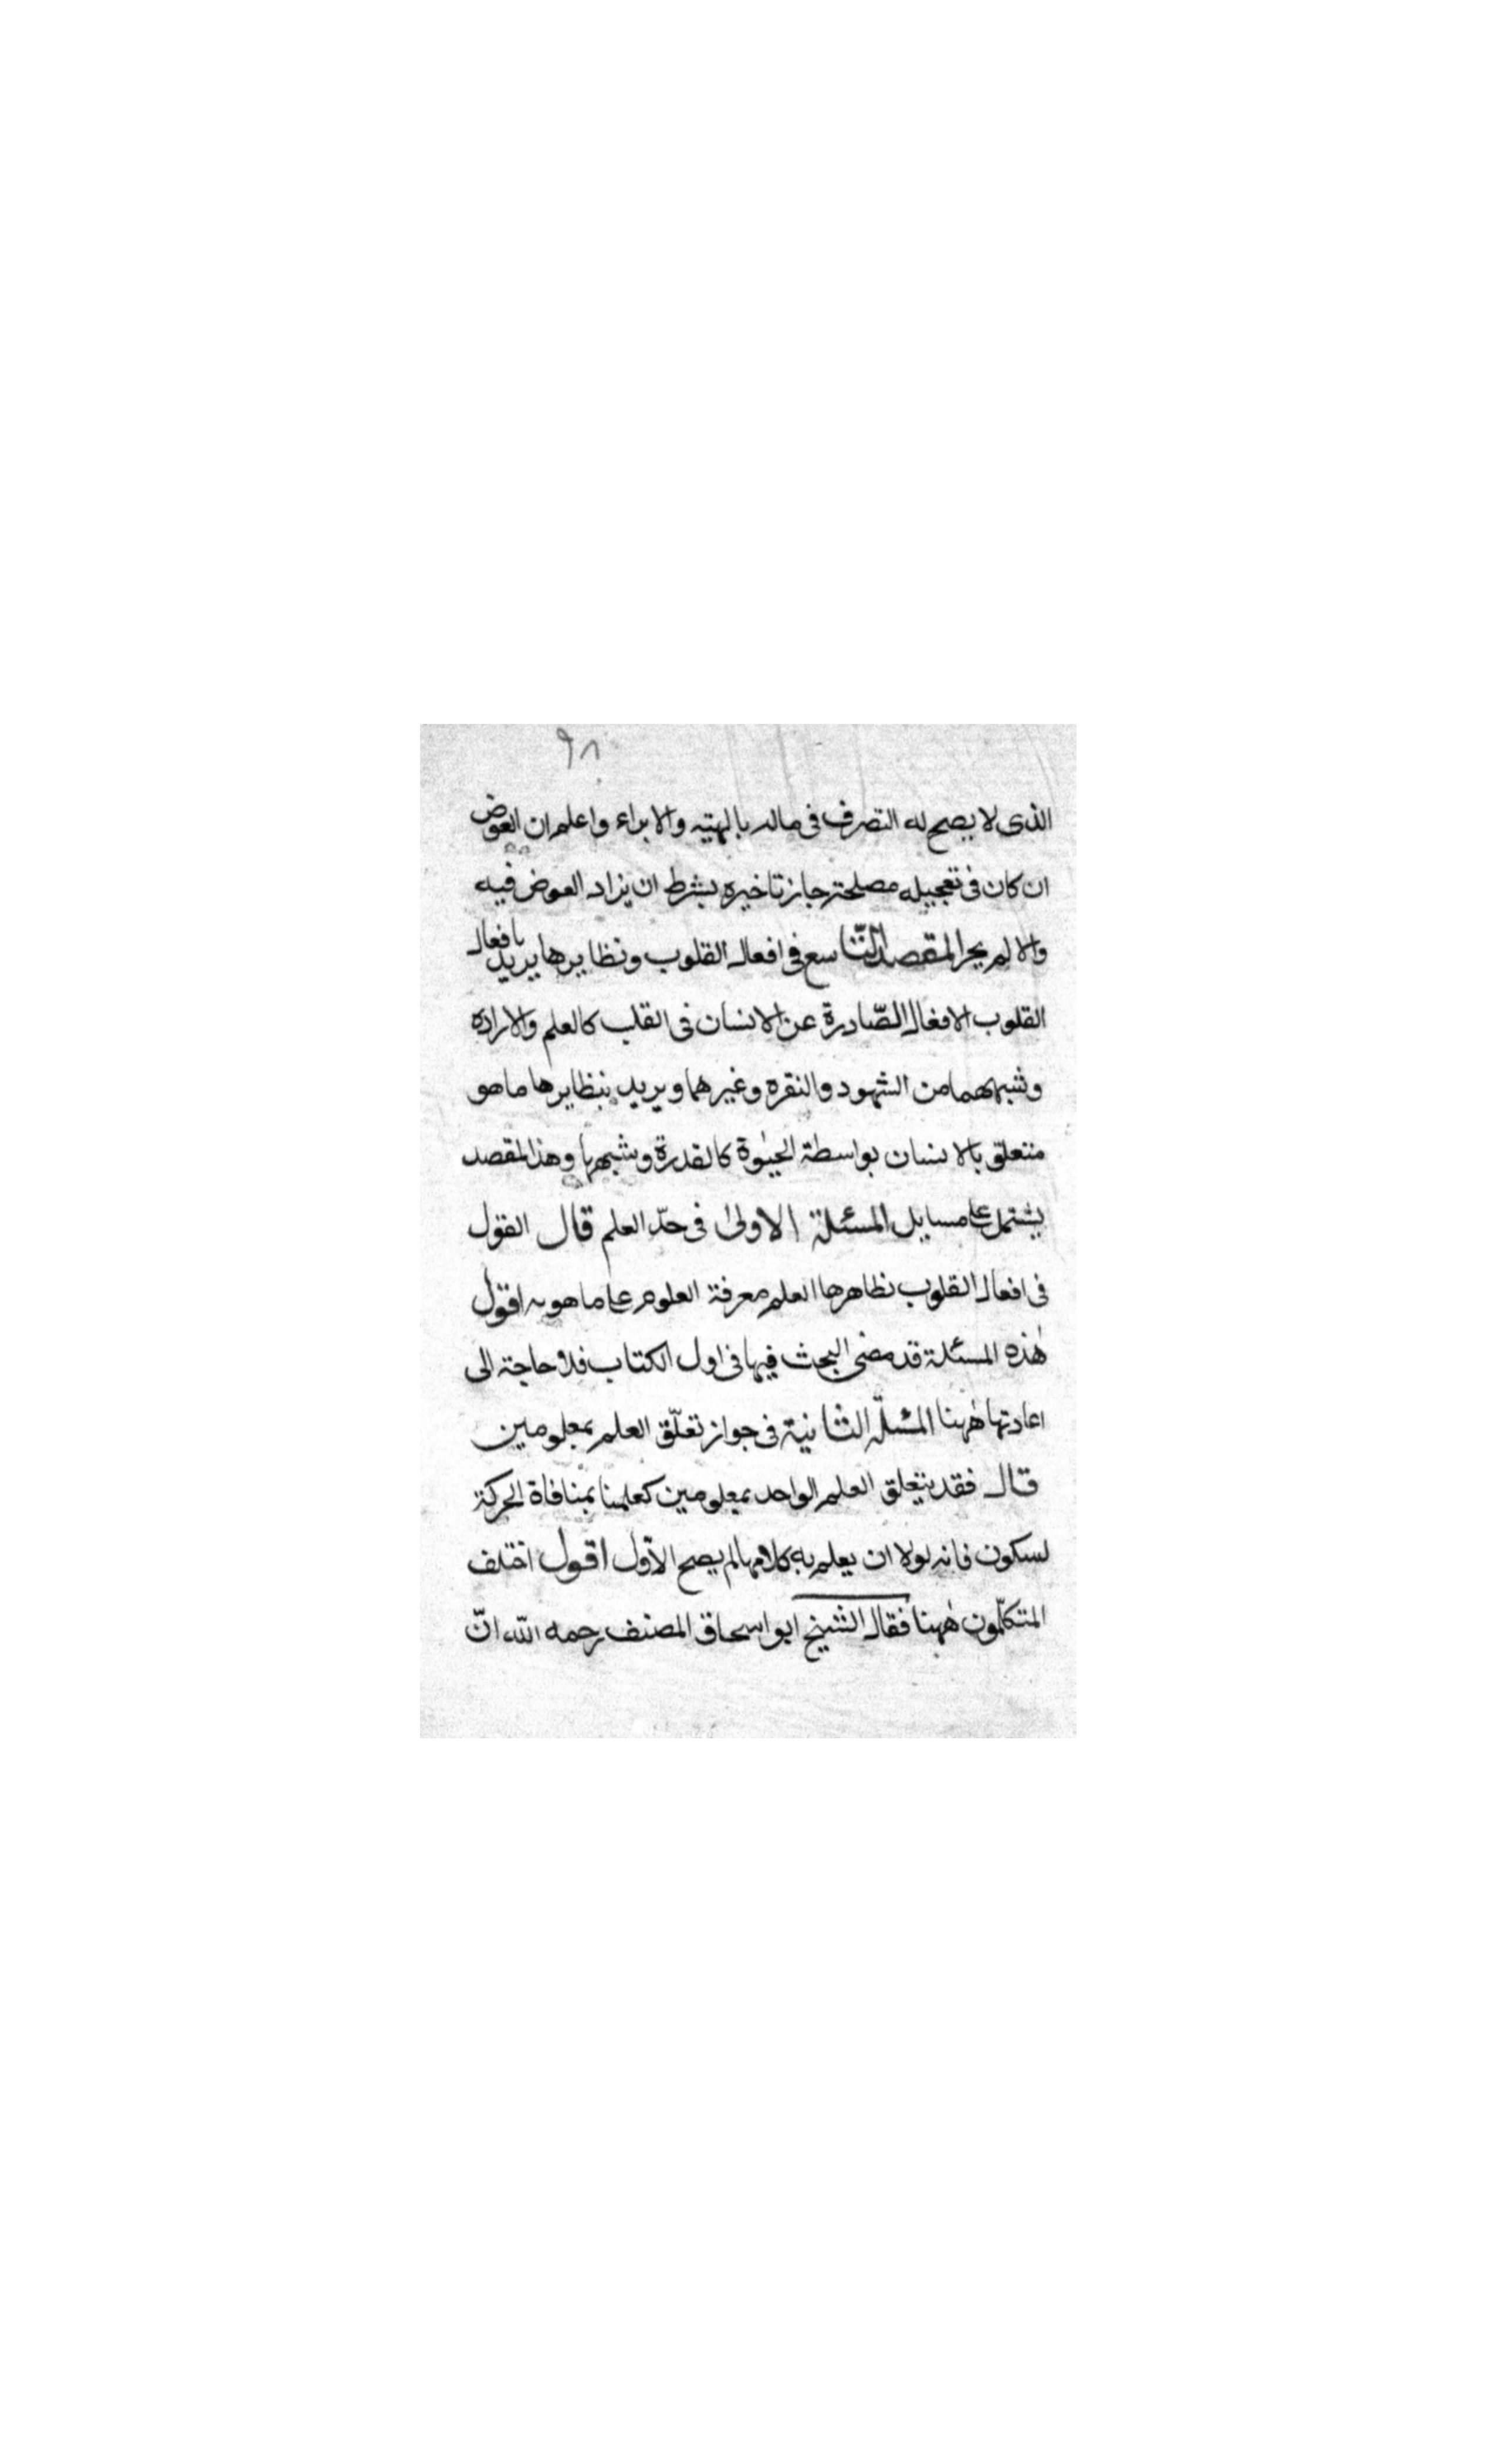 ٩٨
الذى لا يصح له التصرف فى ماله بالهبته والابراء واعلم ان العوض
ان كان فى تعجيله مصلحة جاز تاخيره بشرط ان يزاد العوض فيه
والا لم يجز المقصد التّاسع فى افعال القلوب ونظايرها يريد بافعال
القلوب الافعال الصّادرة عن الانسان فى القلب كالعلم والاراده
وشبههما من الشهود والنفره وغيرهما ويريد بنظايرها ما هو
متعلق بالانسان بواسطة الحيٰوة كالقدرة وشبهها وهذا المقصد
يشتمل على مسايل المسئلة الاولىٰ فى حدّ العلم قال القول
فى افعال القلوب نظاهرها العلم معرفة العلوم على ما هو به اقول
هٰذه المسئلة قد مضى البحث فيها فى اول الكتاب فلا حاجة الى
اعادتها هٰهنا المسئلة الثانية فى جواز تعلّق العلم بمعلومين
قال فقد يتعلق العلم الواحد بمعلومين كعلمنا بمنافاة الحركة
لسكون فانه لولا ان يعلم به كلاهما لم يصح الاوّل اقول اختلف
المتكلّمون هٰهنا فقال الشيخ ابو اسحاق المصنف رحمه الله انّ